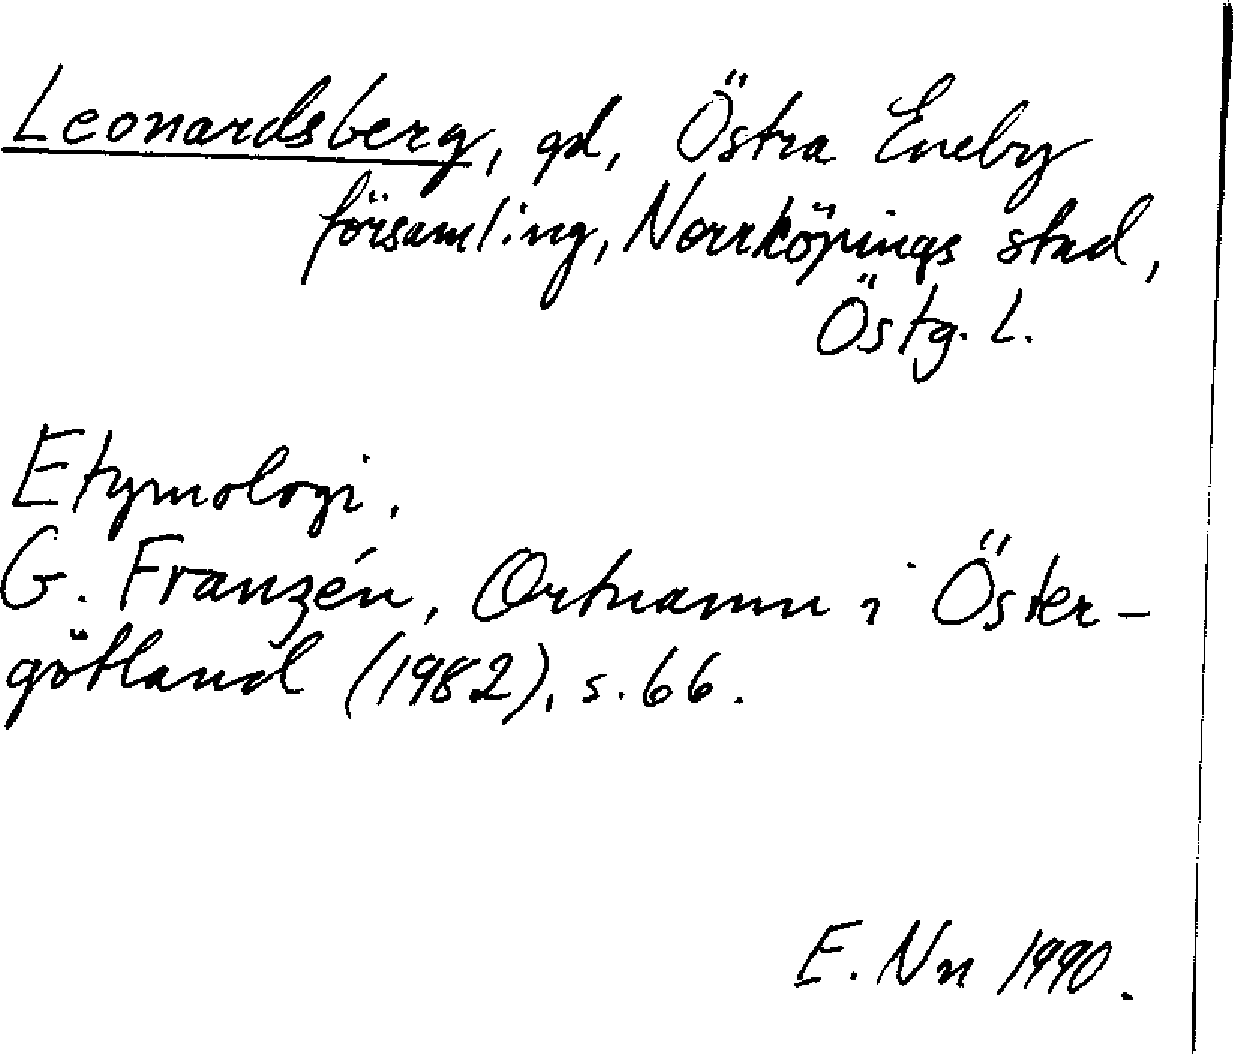 Leonardsberg, gd, Östra Eneby
församling, Norrköpings stad,
Östg. l.
Etymologi.
G. Franzén, Ortnamn i Öster-
götland (1982), s. 66.
E. Nn 1990.